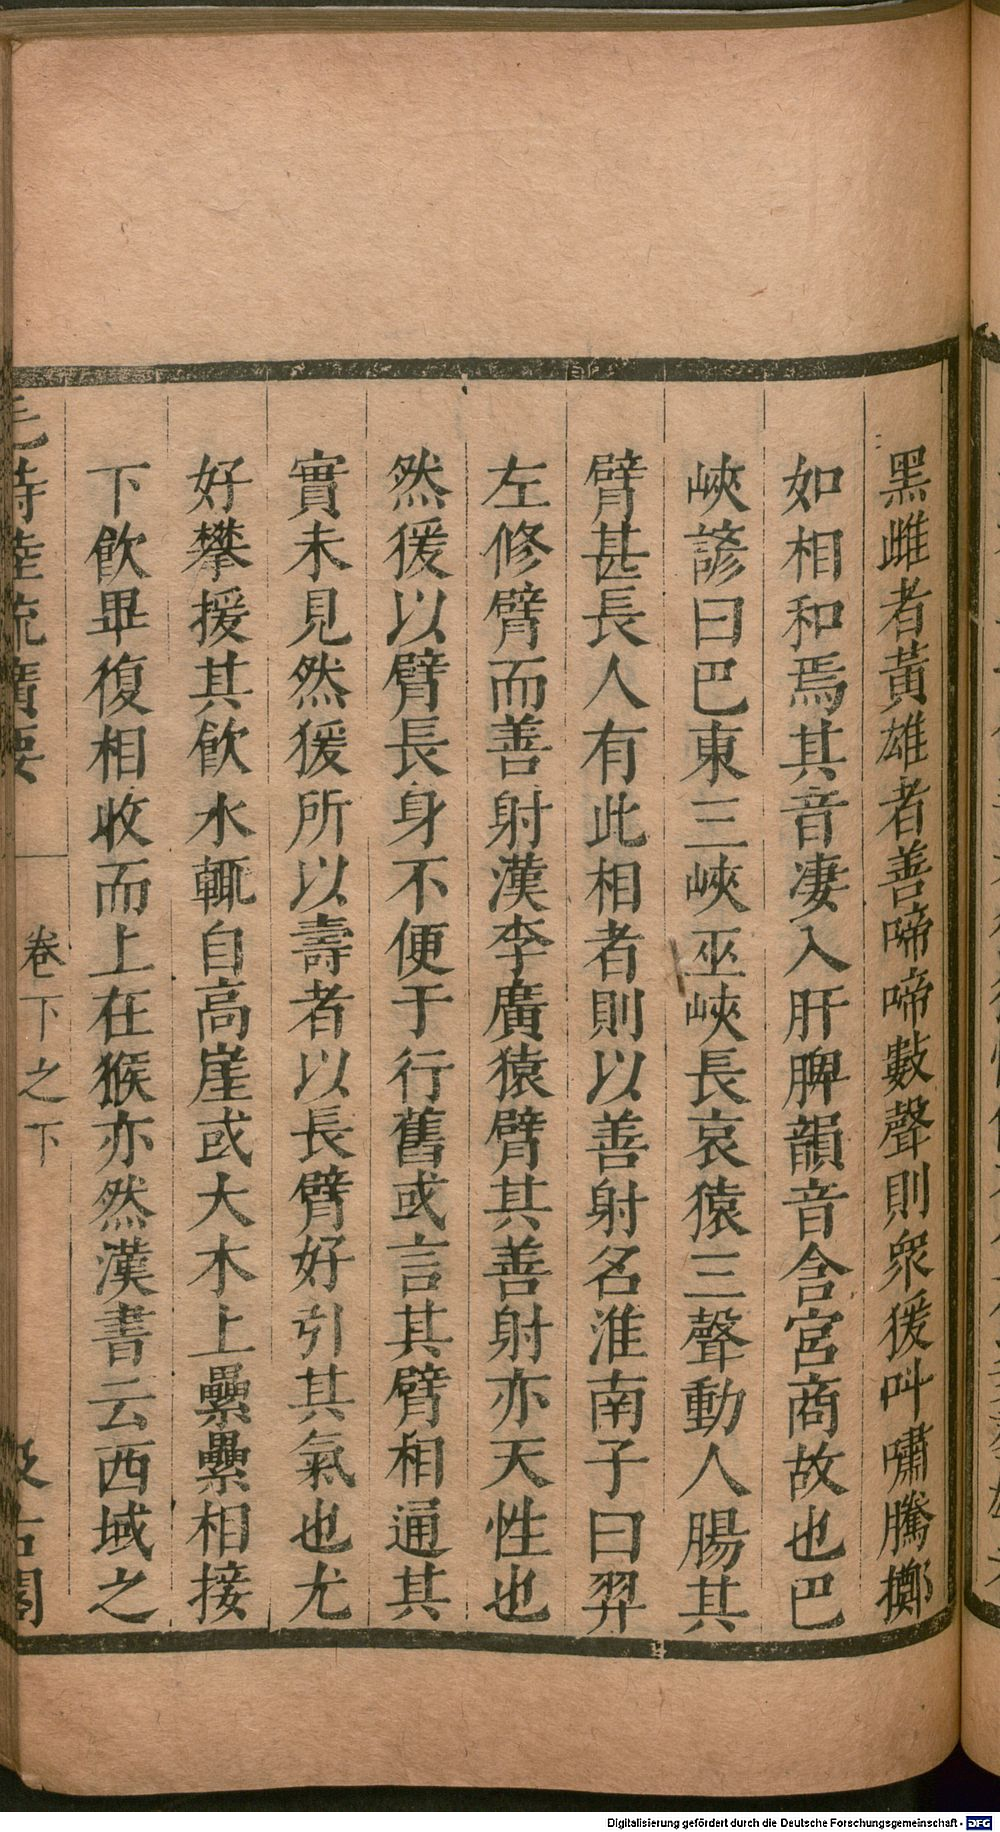 黑雌者黃雄者善啼啼數聲則衆猨叫嘯騰擲
如相和焉其音凄入肝脾韻音含宮商故也巴
峽諺曰巴東三峽巫峽長哀猿三聲動人腸其
臂甚長人有此相者則以善射名淮南子曰羿
左修臂而善射漢李廣猿臂其善射亦天性也
然猨以臂長身不便于行舊或言其臂相通其
實未見然猨所以壽者以長臂好引其氣也尤
好攀援其飲水輒自高崖或大木上纍纍相接
下飲畢復相收而上在猴亦然漢書云西域之
毛詩陸疏廣要
卷下之下
汲古閣
Digitalisierung gefördert durch die Deutsche Forschungsgemeinschaft - DFG